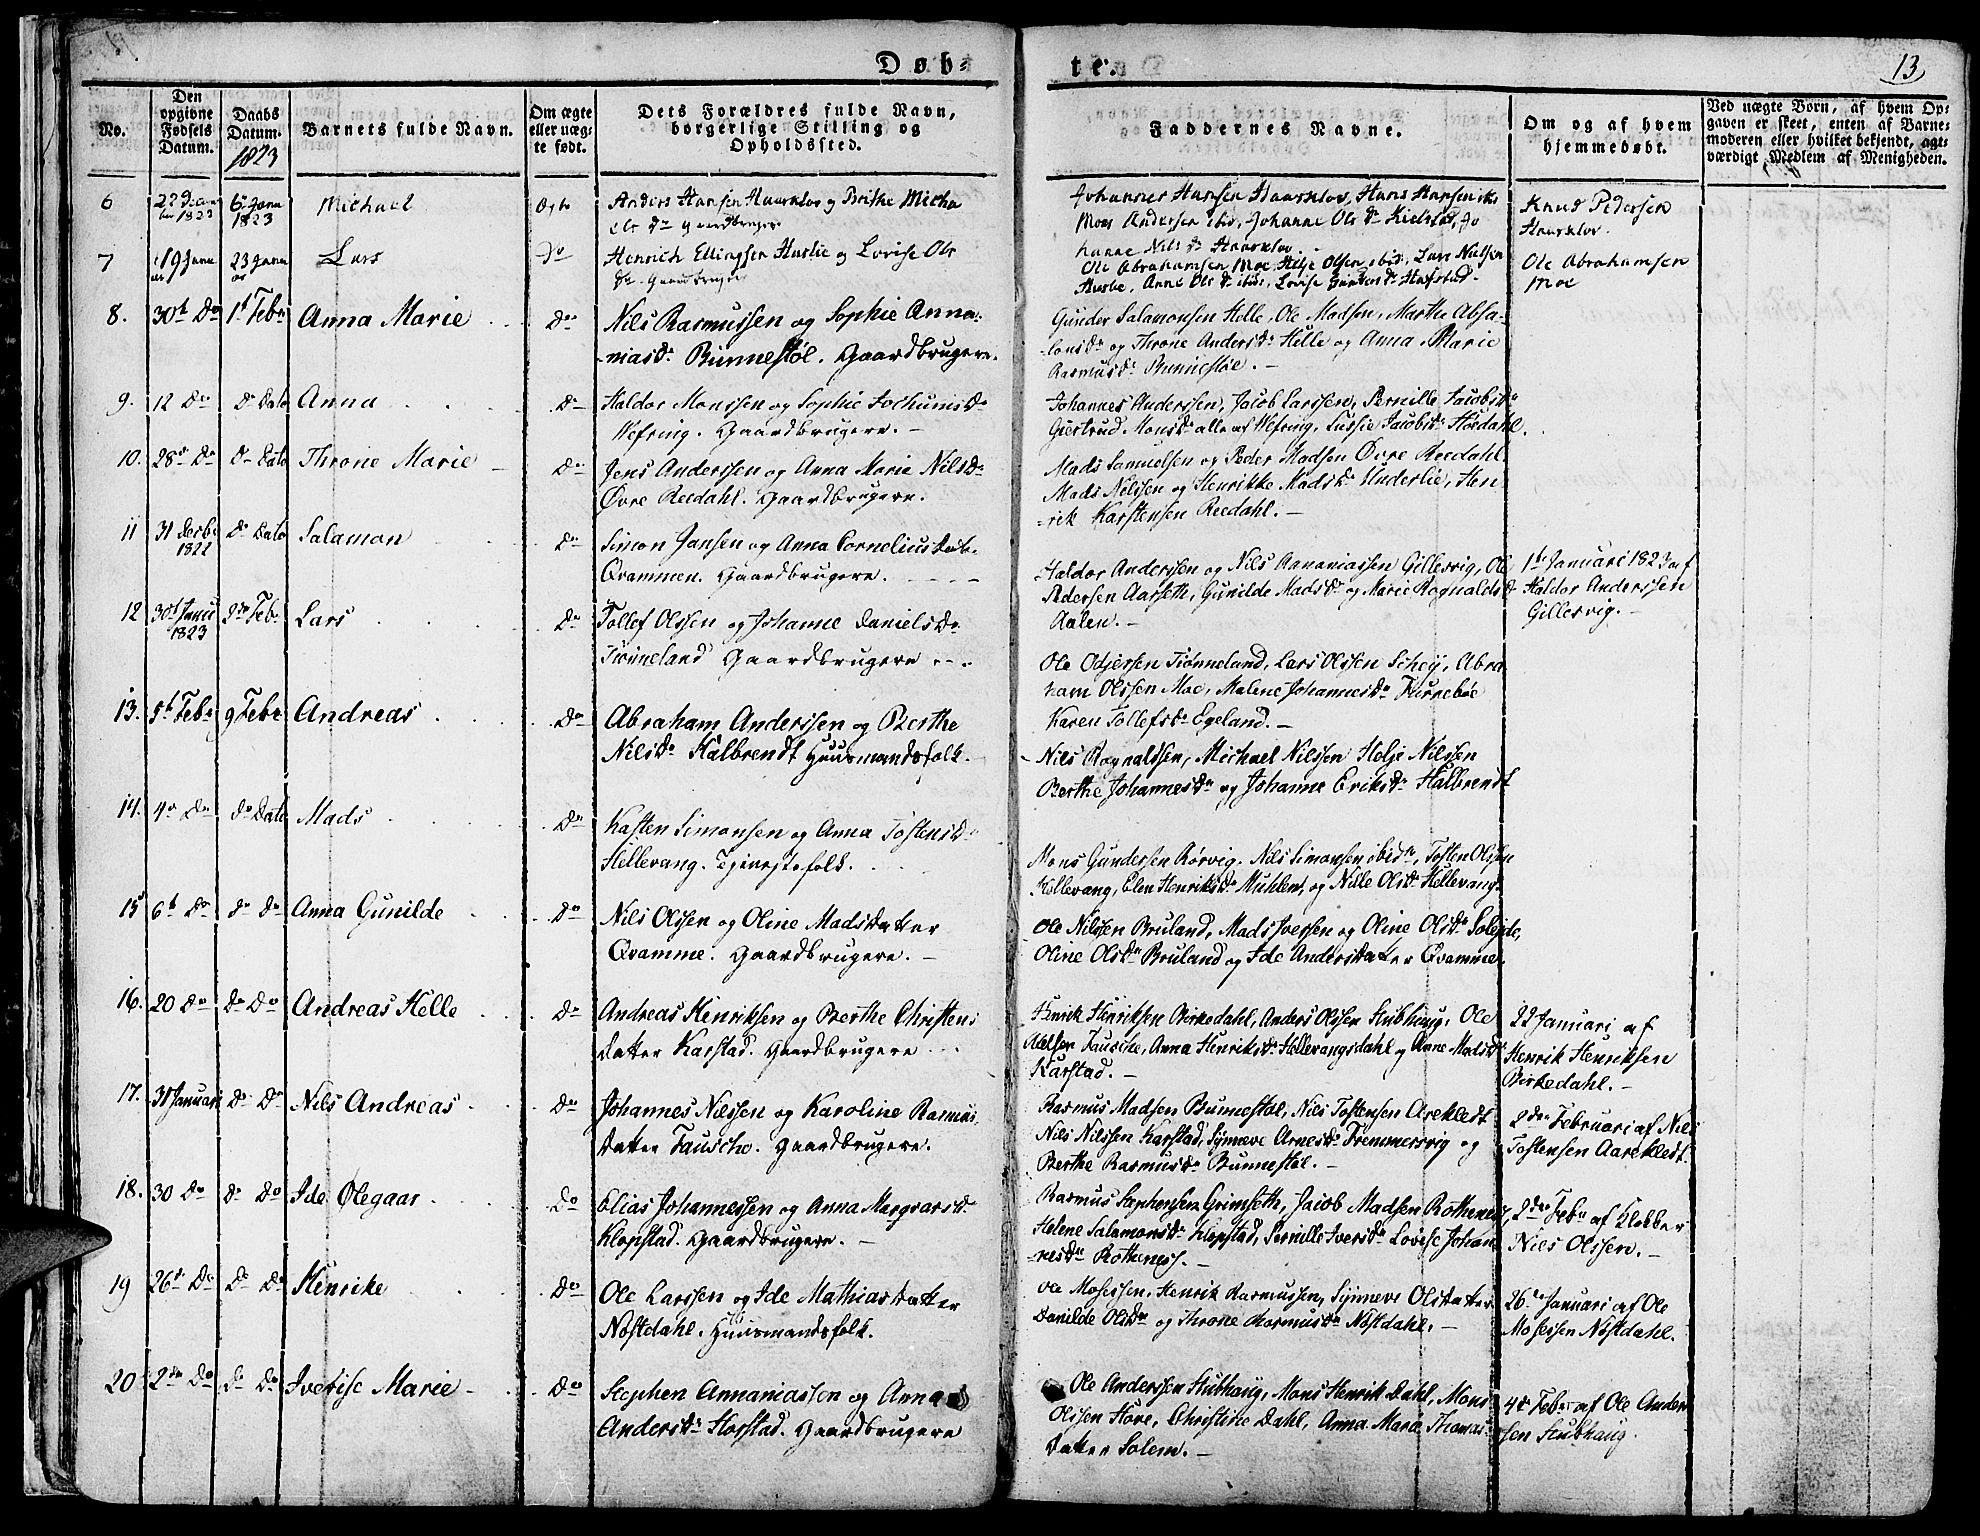 Døb-
te.
13
No.
Den opgivne Fødsels Datum.
Daabs Datum. 1823
Barnets fulde Navn.
Om ægte eller uæg- te født.
Dets Forældres fulde Navn, borgerlige Stilling og Opholdssted.
Faddernes Navne.
Om og af hvem hjemmedøbt.
Ved uægte Børn, af hvem Op- gaven er skeet, enten af Barne- moderen eller hvilket bekjendt, agt- værdigt Medlem af Menigheden.
6
1823
6te Janu
1823
Michael
Ægte
Anders Hansen Haarklov og Birthe Micha
els Dr Gaardbrugere
Johannes Hansen Haarklov, Hans Hansen ibid
Moes Andersen ibid, Johanne Ols Dr Kielstad, Jo
hanne Nils Dr Haarklov
Knud Pedersen
Haarklov.
7
19 Janu
23 Janu
Lars
Do
Henrich Ellingsen Huslie og Lovise Ols
Dr Gaardbrugere
Ole Abrahamsen Moe, Helje Olsen ibid, Lars Nielsen
Huslie, Anne Ols Dr ibid, Lovise Dr Hafstad.
Ole Abrahamsen
Moe
8.
30te Do
1te Febr
Anna Marie
Do
Nils Rasmussen og Sophie Anna-
niasdr Bunnestøl. Gaardbrugere.
Gunder Salamonsen Helle, Ole Madsen, Marthe Absa-
lonsdr og Throne Andersdr Helle og Anna Marie
Rasmusdr Bunnestøe.-
9.
12 Do
Do Dato
Anna
Do
Haldor Monssen og Sophie Jochumsdr
Wefring. Gaardbrugere.-
Johannes Anderssen, Jacob Larssen, Pernille Jacobsdr
Giertrud Monsdr alle af Wefring, Lussie Jacobsdr Høedahl.
10.
28de Do
Do Dato
Throne Marie
Do
Jens Anderssen og Anna Marie Nilsdr
Øvre Reedahl. Gaardbrugere.
Mads Samuelsen og Peder Madsen Øvre Reedahl
Mads Nilssen og Henrikke Madsdr Underlie, Hen
rik Karstensen Reedahl.-
11
31 Decbr
1822
Do Dato
Salamon
Do
Simon Jansen og Anna Corneliusdatr
Qvammen. Gaardbrugere.
Haldor Anderssen og Nils Annaniassen Gillesvig, Ole
Pedersen Aarseth, Gunilde Madsdr og Marie Rognaldsd
Aalen.-
1te Januari 1823 af
Haldor Anderssen
Gillesvig.-
12
30te Janu
1823
2den Febr
Lars
Do
Tollef Olssen og Johanne Danielsdr
Tiønneland Gaardbrugere
Ole Odjersen Tiønneland, Lars Olssen Schey, Abra
ham Olssen Moe, Malene Johannesdr Furrebøe
Karen Tollefsdr Egeland.-
13.
5te Febr
9 Febr
Andreas
Do
Abraham Anderssen og Berthe
Nilsdr Halbrendt Huusmandsfolk.
Nils Rognaldsen, Michael Nilssen Helje Nilssen
Berthe Johannesdr og Johanne Eriksdr Halbrendt
14.
4de Do
Do Dato
Mads
Do
Kasten Simonsen og Anna Tostensd
Hellevang. folk.
Mons Gundersen Rørvig. Nils Simonsen ibid, Tosten Olssen
Hellevang, Elen Henriksdr Muhlen, og Nille Olsdr Hellevang
15
6te Do
Do Do
Anna Gunilde
Do
Nils Olssen og Oline Madsdatter
Qvamme. Gaardbrugere.-
Ole Nilssen Bruland, Mads Ivessen og Oline Olsdr Solejde,
Oline Olsdr Bruland og Ide Andersdatter Qvamme.
16.
20 Do
Do Do
Andreas Helle
Do
Andreas Henriksen og Berthe Christens
datter Karstad. Gaardbrugere
Henrik Henriksen Birkedahl, Anders Olssen Stubhaug, Ole
Fausche, Anna Henriksdr Hellevangsdahl og Anne Madsd
Karstad.-
22 Januari af
Henrik Henriksen
Birkedahl.-
17.
31 Januari
Do Do
Nils Andreas
Do
Johannes Nilssen og Karoline Rasmus
datter Fausche. Gaardbrugere.
Rasmus Madsen Bunnestøl, Nils Tostensen Areklett
Nils Nilssen Karstad, Synneve Arnesdr Fremmersvig og
Berthe Rasmusdr Bunnestøl.-
2den Februari af Nils
Tostensen Aareklett.
18.
30 Do
Do Do
Ide Olegaar
Do
Elias Johannessen og Anna
Klopstad. Gaardbrugere.-
Rasmus Stephensen Grimseth, Jacob Madsen Rothenes,
Helene Salamonsdr Klopstad, Pernille Iversdr Lovise Johan
nesdr Rotheness.-
2den Febr af Klokker
Niels Olssen.-
19
26de Do
Do Do
Henrike
Do
Ole Larssen og Ide Mathiasdatter
Nøstdahl. Huusmandsfolk.
Ole Mosessen, Henrik Rasmussen, Synneve Olsdatter
Danilde Olsdr og Throne Rasmusdr Nøstdahl.-
26de Januari af Ole
Mosessen Nøstdahl.
20
2den Do
Do Do
Iverise Marie
Do
Stephen Annaniassen og Anna
Andersdr Horstad. Gaardbrugere
Ole Anderssen Stubhaug, Mons Henrik Dahl, Mons
Olssen Hove, Christine Dahl, Anna Maria Thomas-
datter Solem.-
4de Febr af Ole Anders
sen Stubhaug.